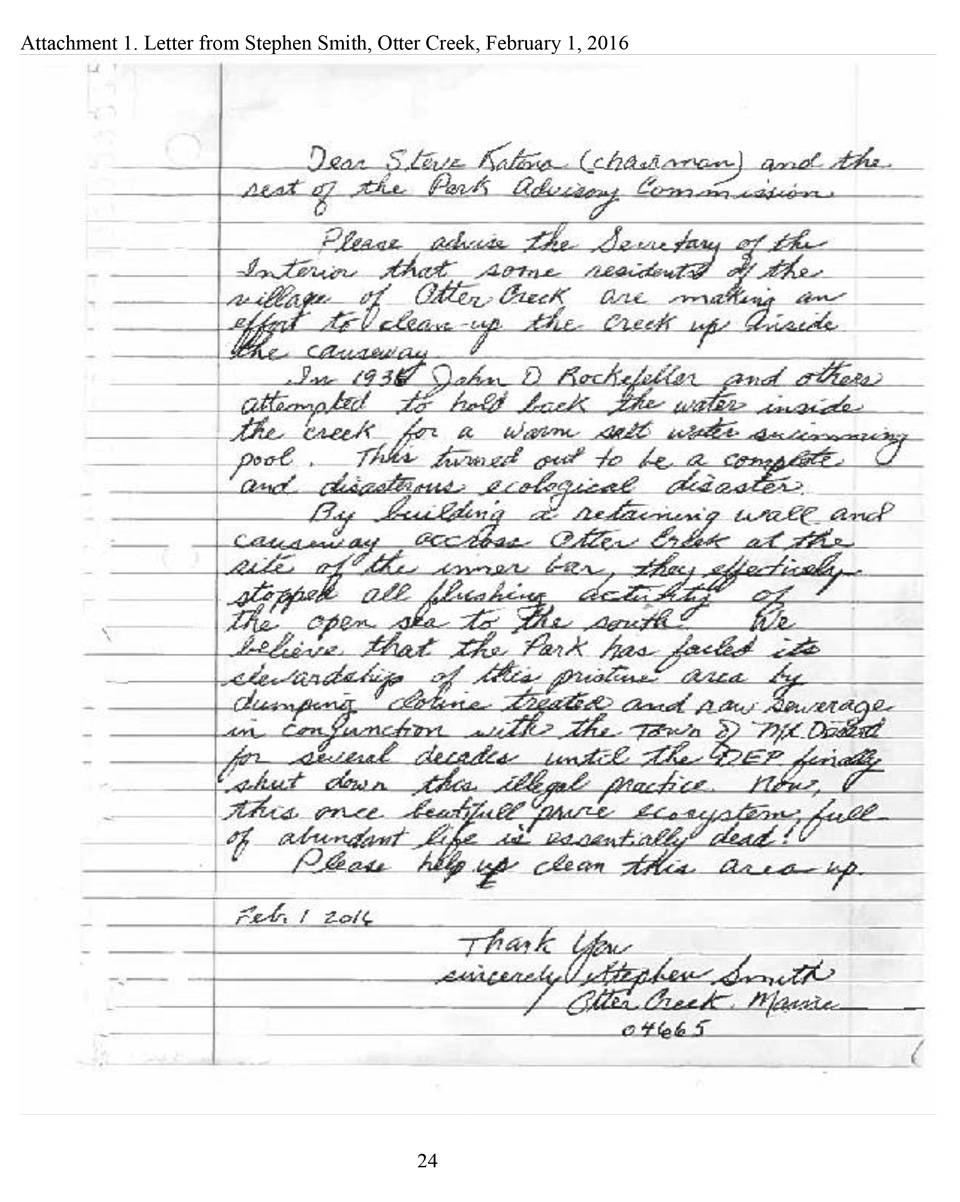 Attachment 1. Letter from Stephen Smith, Otter Creek, February 1, 2016
Dear Steve Katona (chairman) and the
rest of the Park Advisory Commission
Please advise the Secretary of the
Interior that some residents of the
village of Otter Creek are making an
effort to clean-up the creek up inside
the causeway
In John D Rockefeller and others
attempted to hold back the water inside
the creek for a warm salt water swimming
pool. This turned out to be a complete
and disasterous ecological disaster.
By building a retaining wall and
causeway accross Otter Creek at the
site of the inner bar, they effectively
stopped all flushing activity of
the open sea to the south. We
believe that the Park has failed its
stewardship of this pristine area by
dumping clorine treated and raw sewerage
in conjunction with the Town of Mt. Desert
for several decades until the DEP finally
shut down this illegal practice. Now,
this once beautifull pure ecosystem, full
of abundant life is essentially dead!
Please help us clean this area up.
Feb. 1 2016
Thank You
sincerely Stephen Smith
Otter Creek. Maine
04665
24